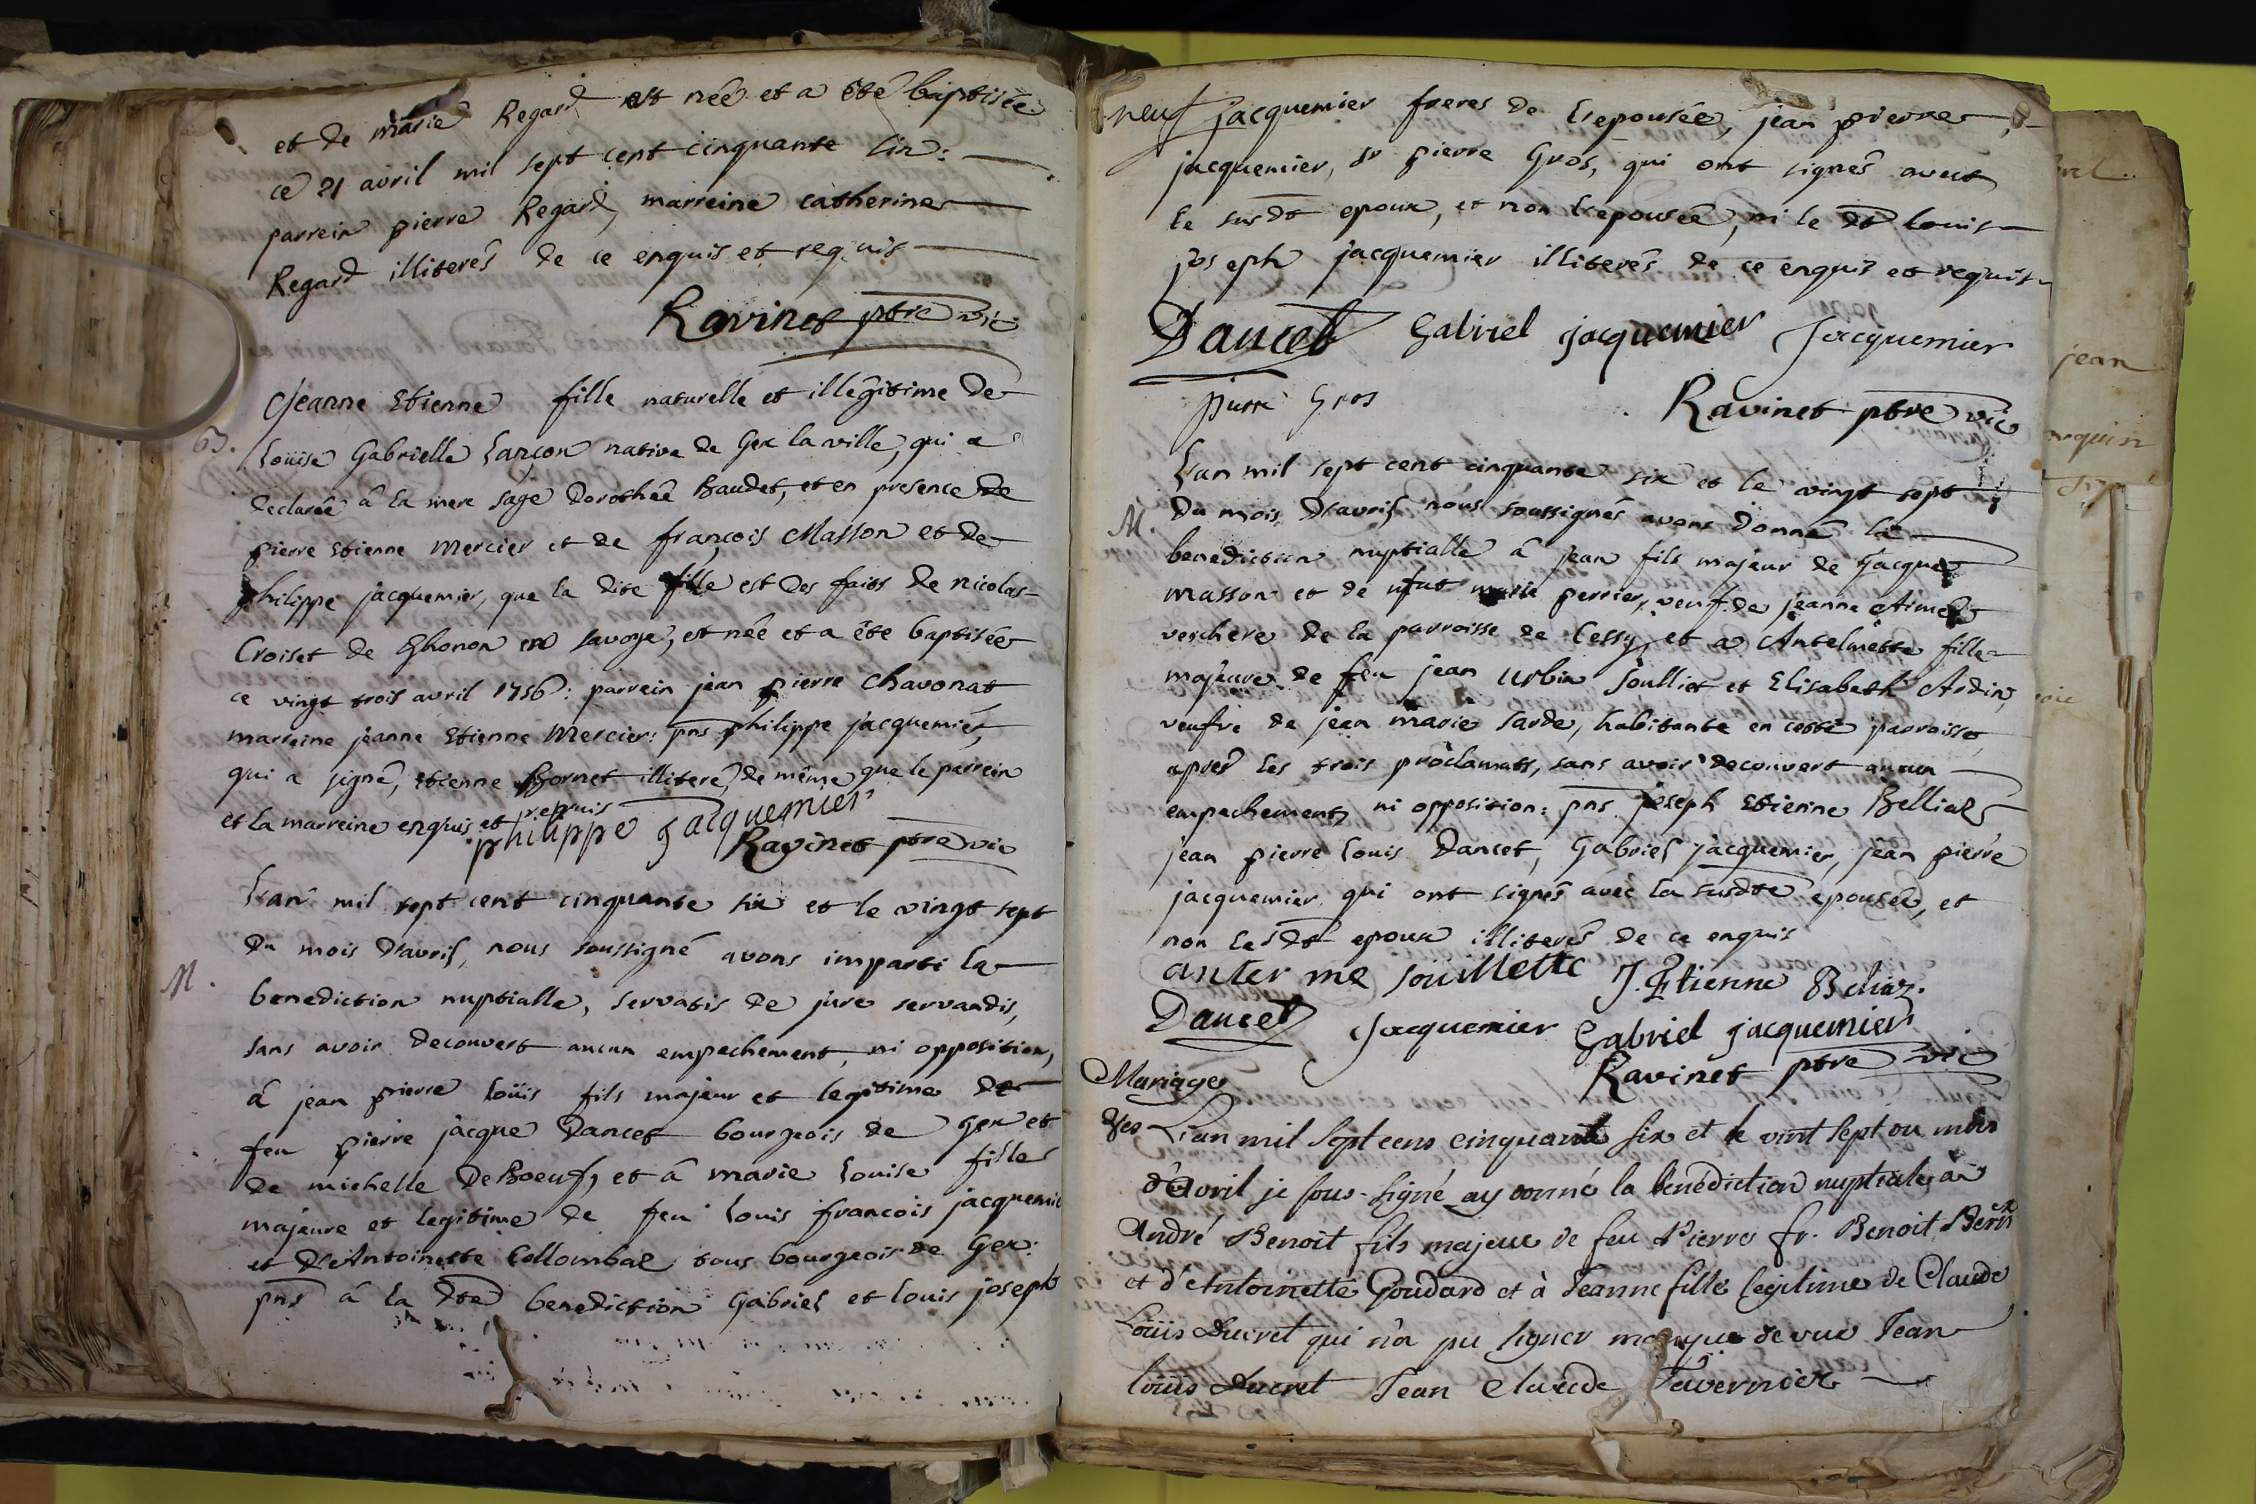 et de marie Regard est née et a été baptisée
ce 21 avril mil sept cent cinquante six:
parrein pierre Regard, marreine catherine
Regard illiterés de ce enquis et requis
Ravinet ptre vic
Jeanne Etienne fille naturelle et illégitime de
B. Louise Gabrielle Lançon native de Gex la ville, qui a
declarée â la mere sage Dorothée Baudet, et en presence de
pierre Etienne Mercier et de françois Masson et de
philippe jacquemier, que la dite fille est des faits de nicolas
Croiset de Thonon en Savoye, est née et a été baptisée
ce vingt trois avril 1756: parrein jean pierre Chavonat
marreine jeanne Etienne Mercier: pns philippe jacquemier,
qui a signé, etienne Bornet illiteré, de même que le parrein
et la marreine enquis et requis
philippe jacquemier
Ravinet ptre vic
L'an mil sept cent cinquante six et le vingt sept
du mois d'avril, nous soussigné avons imparti la
M. benediction nuptialle, servatis de jure servandis,
sans avoir decouvert aucun empechement, ni opposition,
â jean pierre Loüis fils majeur et legitime de
feu pierre jacque Dancet bourgeois de Gex et
de michelle DeBoeuf, et â marie Louise fille
majeure et legitime de feu Louis françois jacquemier
et d'Antoinette Collombal tous bourgeois de Gex:
pns â la dte benediction Gabriel et Louis joseph
neuf jacquemier freres de L'epousée, jean pierre
jacquemier, sr pierre Gros, qui ont signés avect
le susdt epoux, et non L'epouseé, ni le dt Louis
joseph jacquemier illiterés de ce enquis et requis
Dancet Gabriel jacquemier Jacquemier
pierre Gros
Ravinet ptre vic
L'an mil sept cent cinquante six et le vingt sept
M. Du mois D'avril nous soussignés avons donné la
benediction nuptialle â jean fils majeur de jacque
masson et de marie perrier, veuf de jeanne Aimée
verchere de la parroisse de Cessy, et a Antelmette fille
majeure de feu jean Urbin Soulliet et Elisabeth Ardin,
veufve de jean marie Sarde, habitante en cette parroisse,
aprés les trois proclamats, sans avoir decouvert aucun
empechement, ni opposition: pns joseph Etienne Belliaz
jean pierre Louis Dancet, Gabriel jacquemier, jean pierre
jacquemier qui ont signés avec la susdte epousée, et
non le sdt epoux illiterés de ce enquis
anter me soüillette J. Etienne Beliaz.
Dancet Jacquemier Gabriel jacquemier
Ravinet ptre vic
Mariage
L'an mil sept cens cinquante six et le vint sept du mois
d'Avril je sous-signé ay donné la bénédiction nuptiale à
André Benoit fils majeur de feu Pierre fr. Benoit
et d'Antoinette Goudard et à Jeanne fille legitime de Claude
Loüis Ducret qui n'a pu signer manque de vue Jean
loüis Ducret Jean Claude Tavernier
jean